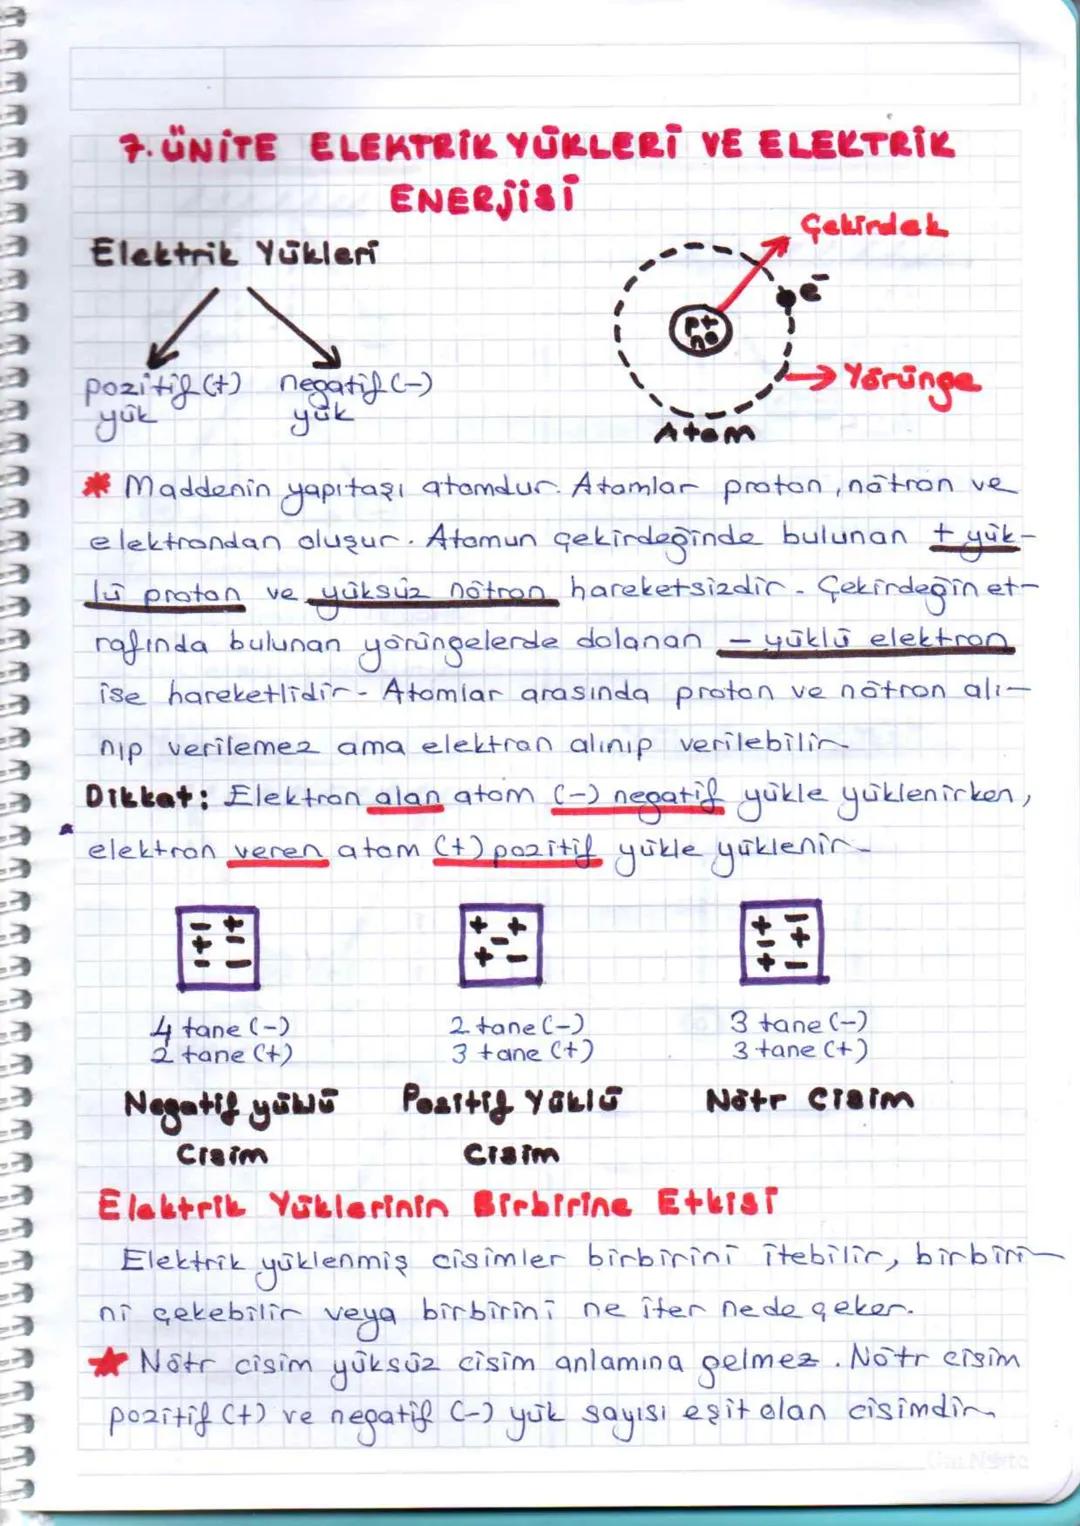 7. ÜNİTE ELEKTRİK YÜKLERİ VE ELEKTRİK
ENERJİSİ
Elektrik Yükleri
Çekirdek
e⁻
p+
n0
pozitif (+) negatif (-)
yük yük
Yörünge
Atom
* Maddenin yapıtaşı atomdur. Atomlar proton, nötron ve
elektrondan oluşur. Atomun çekirdeğinde bulunan + yük-
lü proton ve yüksüz nötron hareketsizdir. Çekirdeğin et-
rafında bulunan yörüngelerde dolanan - yüklü elektron
ise hareketlidir. Atomlar arasında proton ve nötron alı-
nıp verilemez ama elektron alınıp verilebilir.
Dikkat: Elektron alan atom (-) negatif yükle yüklenirken,
elektron veren atom (+) pozitif yükle yüklenir.
- + + + + -
+ - - - +
- - + - + -
4 tane (-) 2 tane (-) 3 tane (-)
2 tane (+) 3 tane (+) 3 tane (+)
Negatif yüklü Pozitif Yüklü Nötr Cisim
Cisim Cisim
Elektrik Yüklerinin Birbirine Etkisi
Elektrik yüklenmiş cisimler birbirini itebilir, birbiri-
ni çekebilir veya birbirini ne iter nede çeker.
★ Nötr cisim yüksüz cisim anlamına gelmez. Nötr cisim
pozitif (+) ve negatif (-) yük sayısı eşit olan cisimdir.